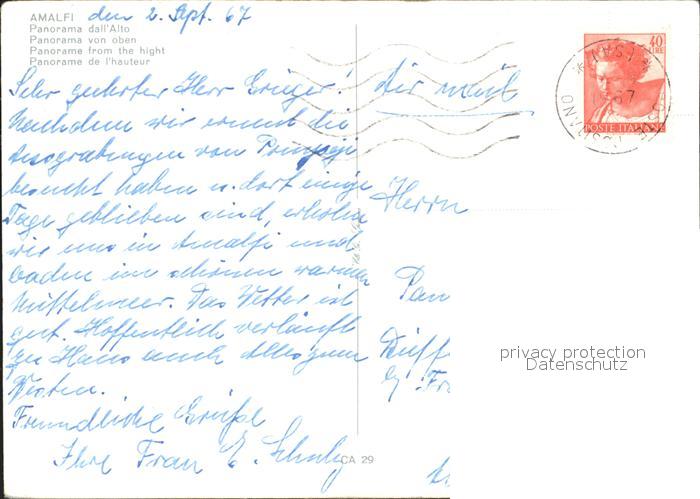 AMALFI den 2. Spt. 67
Panorama dall'Alto
Panorama von oben
Panorame from the hight
Panorame de l'hauteur
Sehr geehrter Herr Krüger!
Nachdem wir erneut die
Ausgrabungen von Pompeji
besucht haben u. dort einige
Tage geblieben sind, erholen
wir uns in Amalfi und
baden im schönen warmen
Mittelmeer. Das Wetter ist
gut. Hoffentlich verläuft
zu Haus auch Alles zum
Besten.
Freundliche Grüße
Ihre Frau E.
CA 29
Air mail
40
LIRE
POSTE ITALIANE
67
Herrn
Pan
privacy protection
Datenschutz